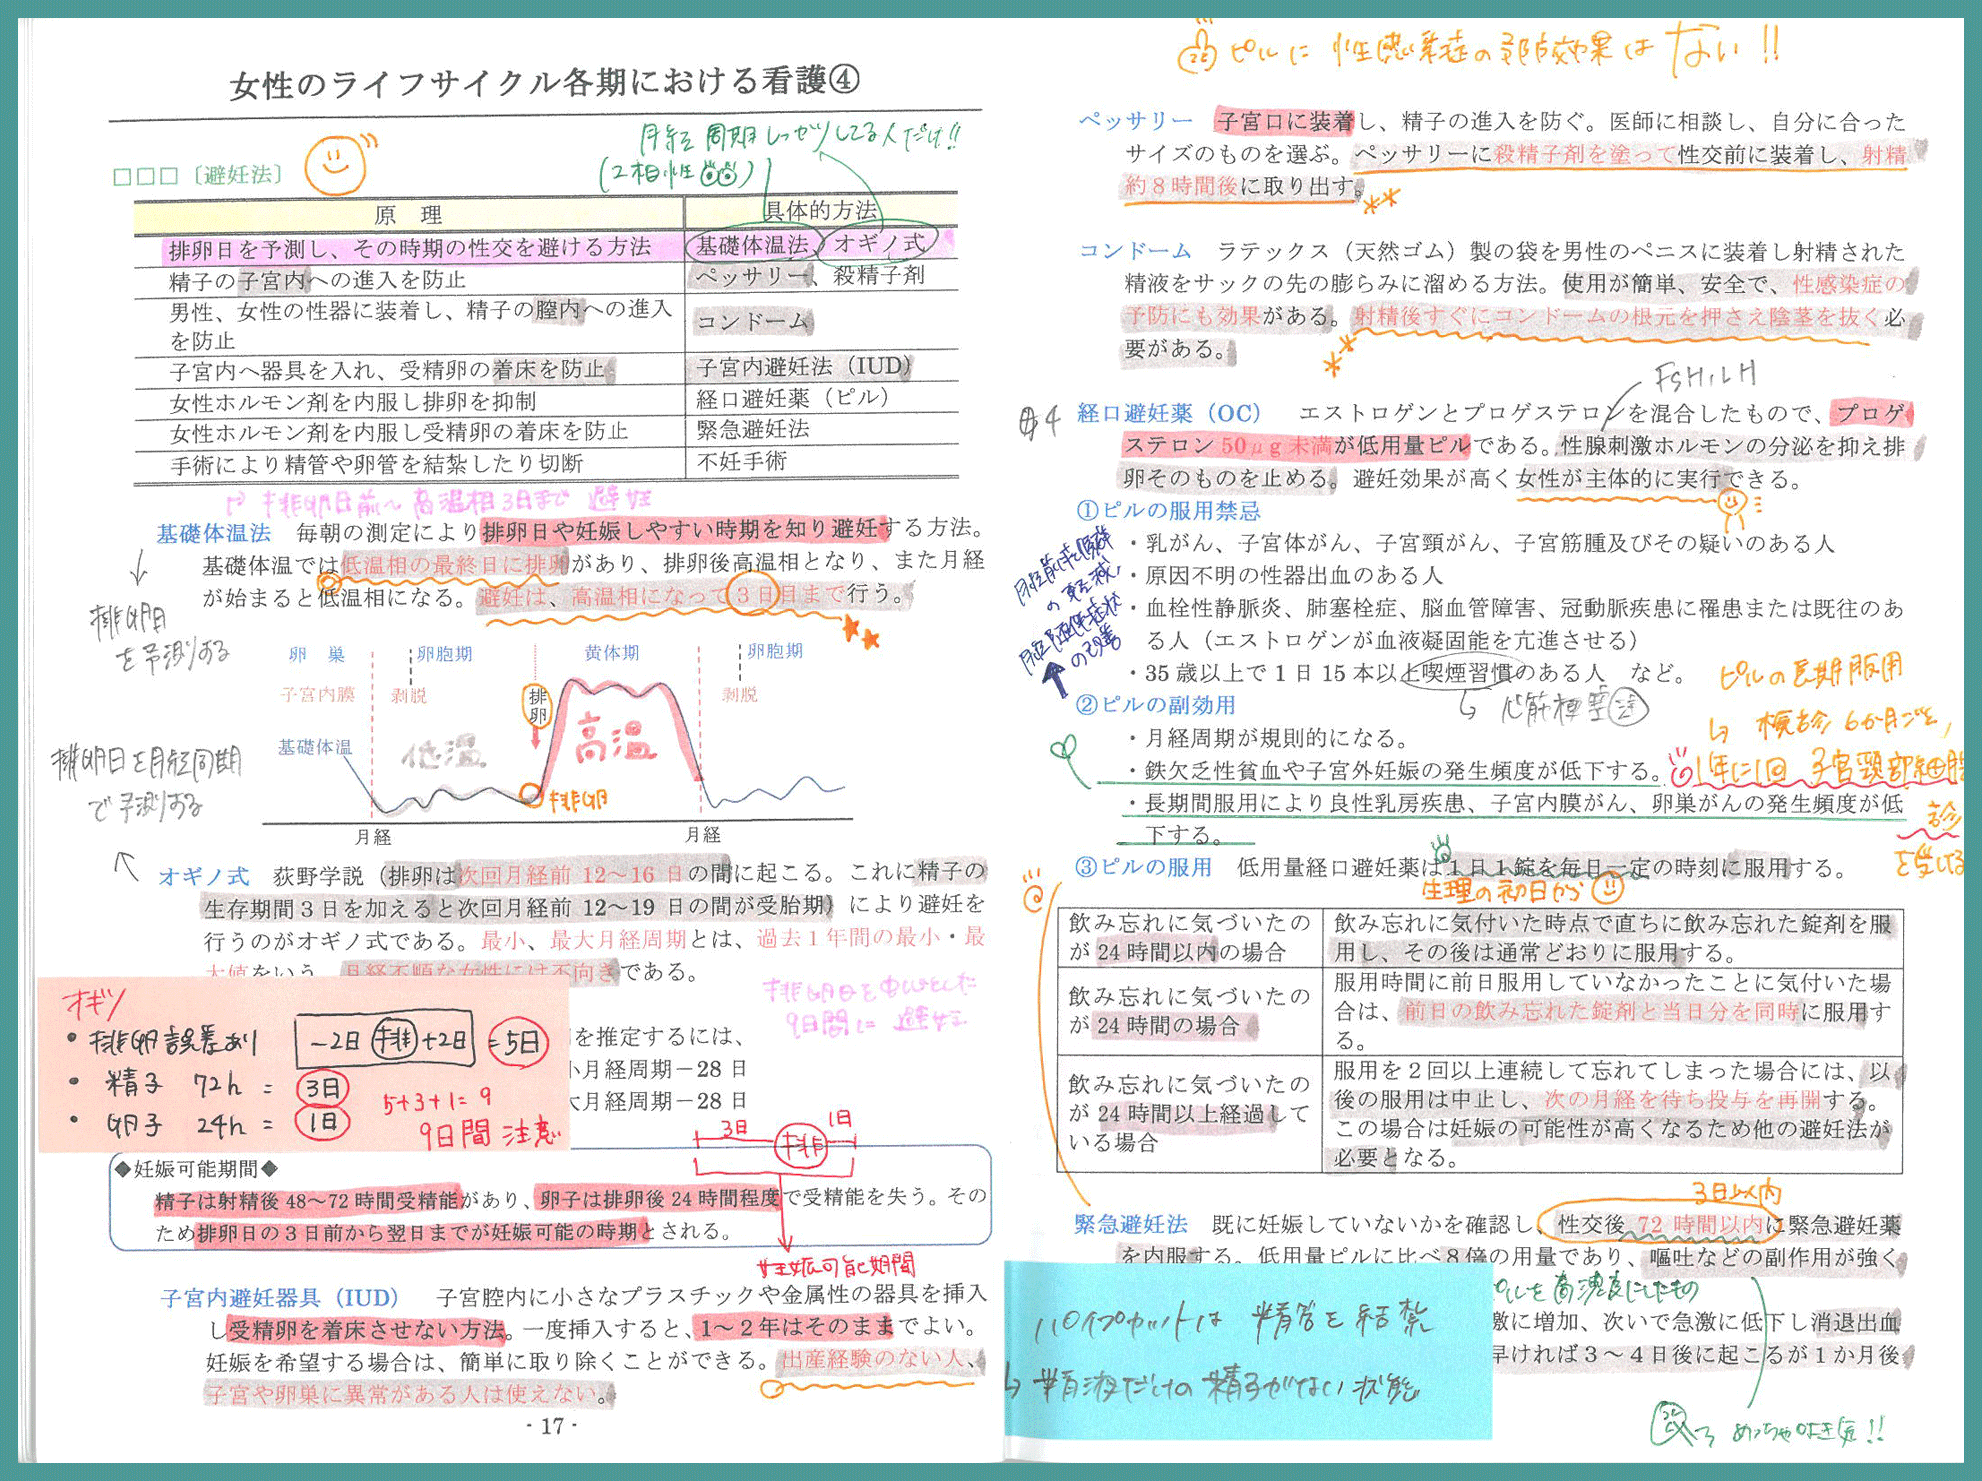 女性のライフサイクル各期における看護④
月経周期しっかりしてる人だけ!!
(2相性)
□□□〔避妊法〕
原　理　具体的方法
排卵日を予測し、その時期の性交を避ける方法　基礎体温法、オギノ式
精子の子宮内への進入を防止　ペッサリー、殺精子剤
男性、女性の性器に装着し、精子の膣内への進入
を防止　コンドーム
子宮内へ器具を入れ、受精卵の着床を防止　子宮内避妊法（IUD）
女性ホルモン剤を内服し排卵を抑制　経口避妊薬（ピル）
女性ホルモン剤を内服し受精卵の着床を防止　緊急避妊法
手術により精管や卵管を結紮したり切断　不妊手術
排卵日前〜高温相3日まで 避妊
基礎体温法　毎朝の測定により排卵日や妊娠しやすい時期を知り避妊する方法。
基礎体温では低温相の最終日に排卵があり、排卵後高温相となり、また月経
が始まると低温相になる。避妊は、高温相になって3日目まで行う。
排卵日
を予測する
卵　巣　卵胞期　黄体期　卵胞期
子宮内膜　剥脱　排卵　剥脱
基礎体温　低温　高温
排卵
月経　月経
排卵日を月経周期
で予測する
オギノ式　荻野学説（排卵は次回月経前 12～16 日の間に起こる。これに精子の
生存期間３日を加えると次回月経前 12～19 日の間が受胎期）により避妊を
行うのがオギノ式である。最小、最大月経周期とは、過去１年間の最小・最
大値をいう。月経不順な女性には不向きである。
排卵日を中心とした
9日間に 避妊
を推定するには、
小月経周期－28 日
大月経周期－28 日
オギノ
・排卵誤差あり　－2日 排 +2日 =5日
・精子 72h = 3日
・卵子 24h = 1日
5+3+1=9
9日間 注意
3日 排 1日
◆妊娠可能期間◆
精子は射精後 48～72 時間受精能があり、卵子は排卵後 24 時間程度で受精能を失う。その
ため排卵日の３日前から翌日までが妊娠可能の時期とされる。
妊娠可能期間
子宮内避妊器具（IUD）　子宮腔内に小さなプラスチックや金属性の器具を挿入
し受精卵を着床させない方法。一度挿入すると、1～２年はそのままでよい。
妊娠を希望する場合は、簡単に取り除くことができる。出産経験のない人、
子宮や卵巣に異常がある人は使えない。
- 17 -
ピルに 性感染症の予防効果は ない!!
ペッサリー　子宮口に装着し、精子の進入を防ぐ。医師に相談し、自分に合った
サイズのものを選ぶ。ペッサリーに殺精子剤を塗って性交前に装着し、射精
約８時間後に取り出す。
コンドーム　ラテックス（天然ゴム）製の袋を男性のペニスに装着し射精された
精液をサックの先の膨らみに溜める方法。使用が簡単、安全で、性感染症の
予防にも効果がある。射精後すぐにコンドームの根元を押さえ陰茎を抜く必
要がある。
FSH、LH
経口避妊薬（OC）　エストロゲンとプロゲステロンを混合したもので、プロゲ
ステロン 50μg 未満が低用量ピルである。性腺刺激ホルモンの分泌を抑え排
卵そのものを止める。避妊効果が高く女性が主体的に実行できる。
①ピルの服用禁忌
・乳がん、子宮体がん、子宮頸がん、子宮筋腫及びその疑いのある人
・原因不明の性器出血のある人
・血栓性静脈炎、肺塞栓症、脳血管障害、冠動脈疾患に罹患または既往のあ
る人（エストロゲンが血液凝固能を亢進させる）
・35 歳以上で１日 15 本以上喫煙習慣のある人　など。
心筋梗塞
月経前症候群
の軽減
月経随伴症状
の改善
②ピルの副効用
・月経周期が規則的になる。
・鉄欠乏性貧血や子宮外妊娠の発生頻度が低下する。
・長期間服用により良性乳房疾患、子宮内膜がん、卵巣がんの発生頻度が低
下する。
ピルの長期服用
検診 6か月ごと、
1年に1回 子宮頸部細胞
診
を受ける
③ピルの服用　低用量経口避妊薬は１日１錠を毎日一定の時刻に服用する。
生理の初日から
飲み忘れに気づいたの
が 24 時間以内の場合　飲み忘れに気付いた時点で直ちに飲み忘れた錠剤を服
用し、その後は通常どおりに服用する。
飲み忘れに気づいたの
が 24 時間の場合　服用時間に前日服用していなかったことに気付いた場
合は、前日の飲み忘れた錠剤と当日分を同時に服用す
る。
飲み忘れに気づいたの
が 24 時間以上経過して
いる場合　服用を２回以上連続して忘れてしまった場合には、以
後の服用は中止し、次の月経を待ち投与を再開する。
この場合は妊娠の可能性が高くなるため他の避妊法が
必要となる。
3日以内
緊急避妊法　既に妊娠していないかを確認し、性交後 72 時間以内に緊急避妊薬
を内服する。低用量ピルに比べ８倍の用量であり、嘔吐などの副作用が強く
ピルを高濃度にしたもの
激に増加、次いで急激に低下し消退出血
早ければ３～４日後に起こるが１か月後
パイプカットは 精管を結紮
精液だけの 精子がない状態
めっちゃはき気!!